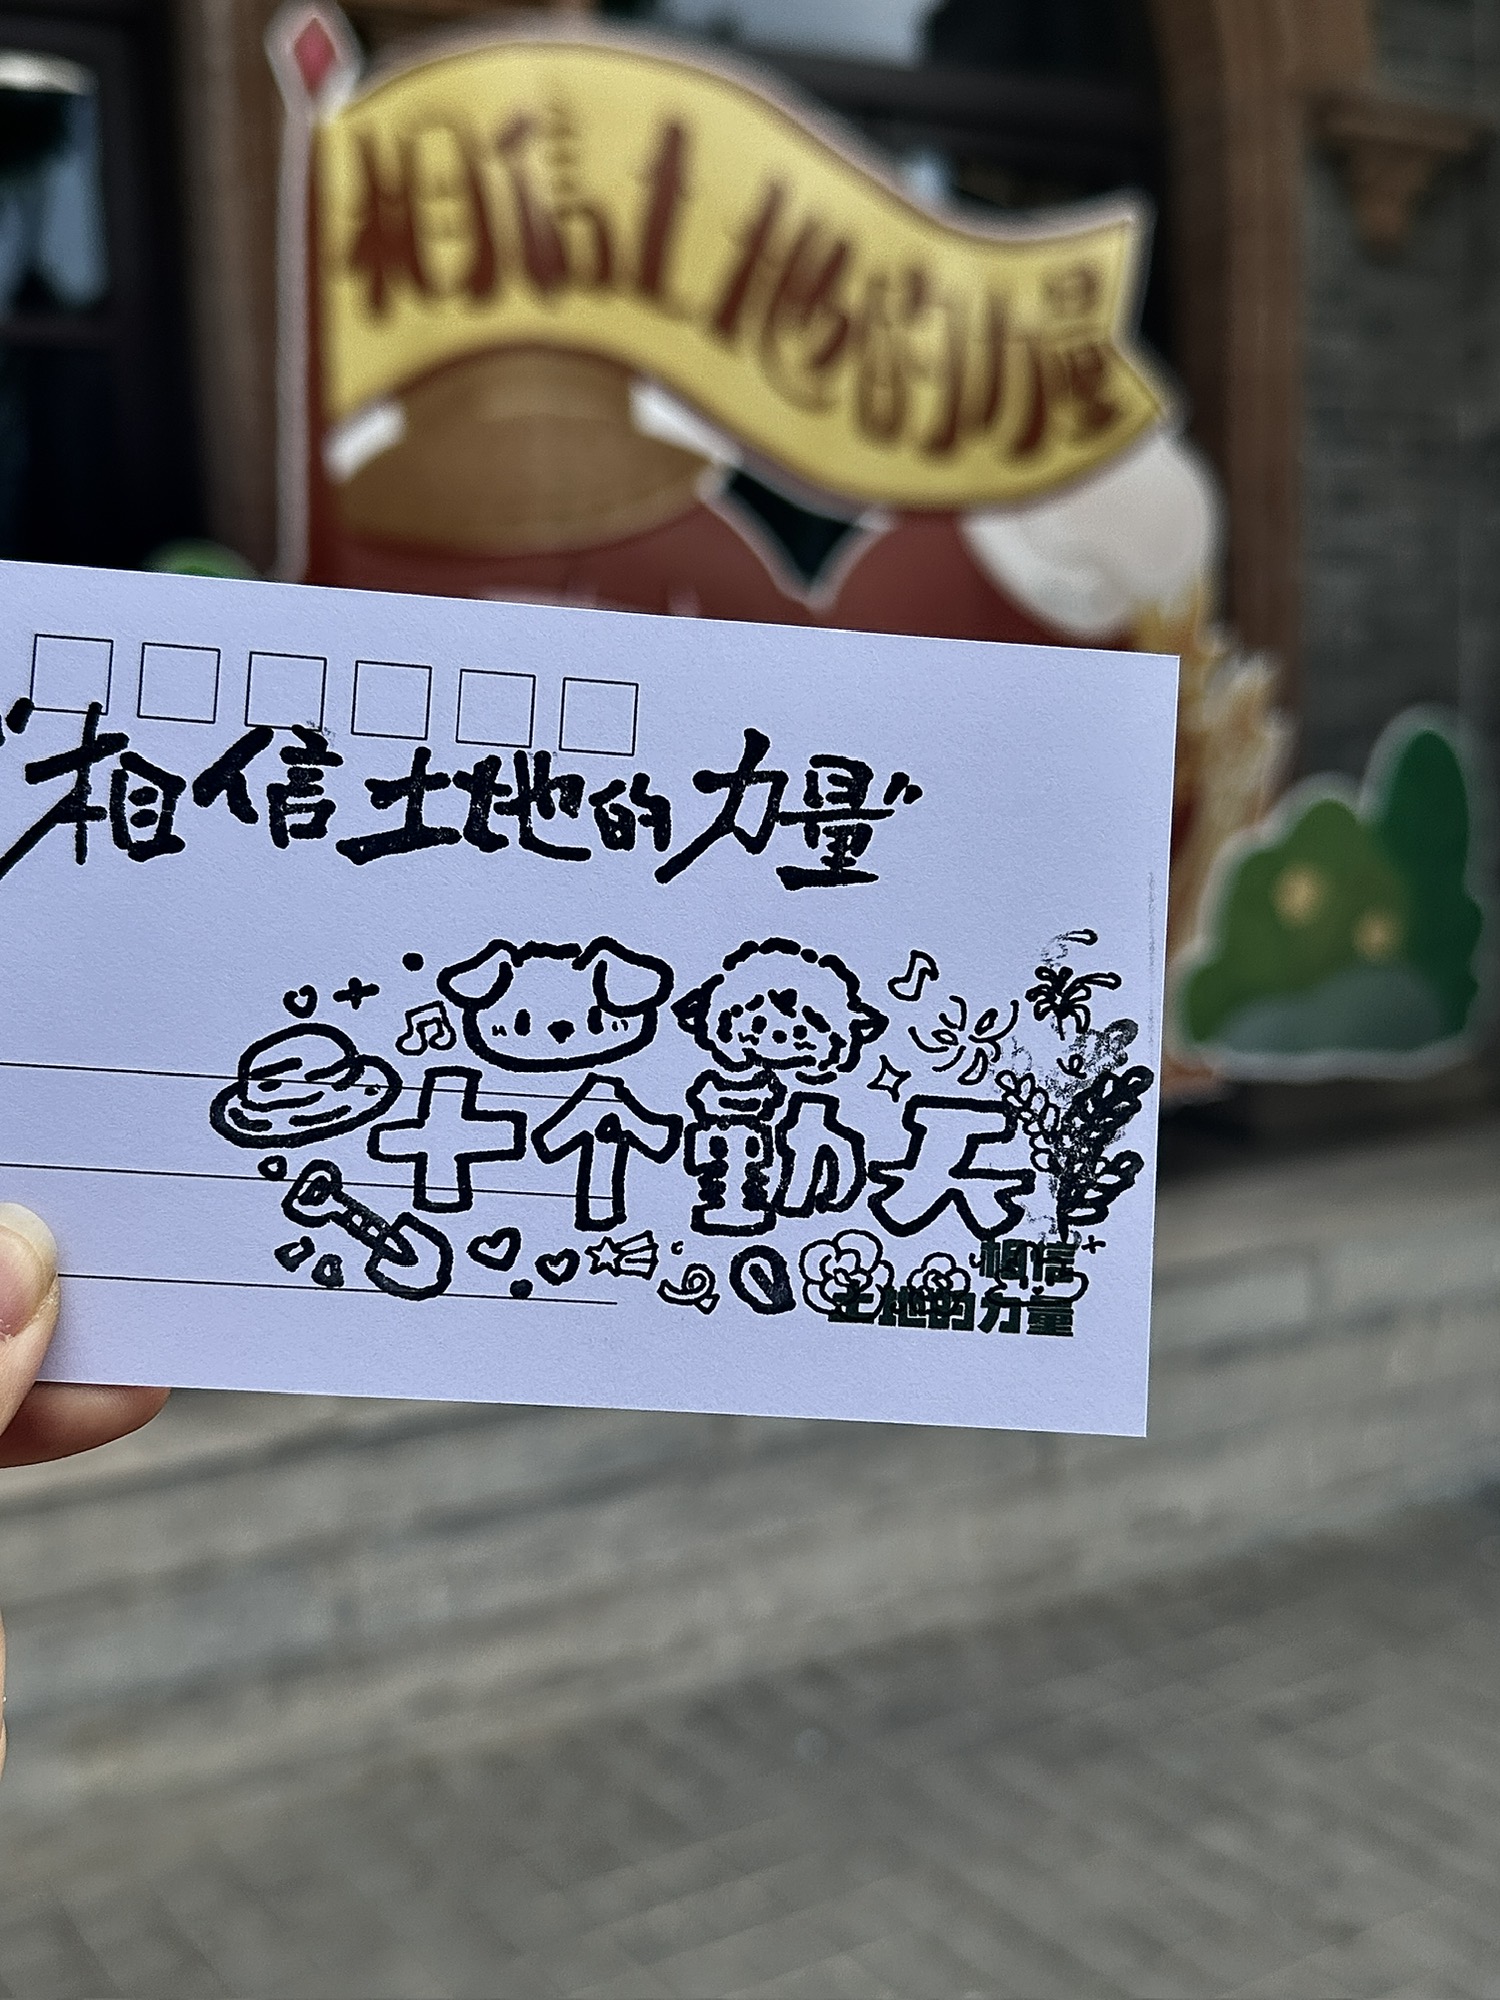 相信土地的力量
“相信土地的力量”
十个勤天
相信
土地的力量